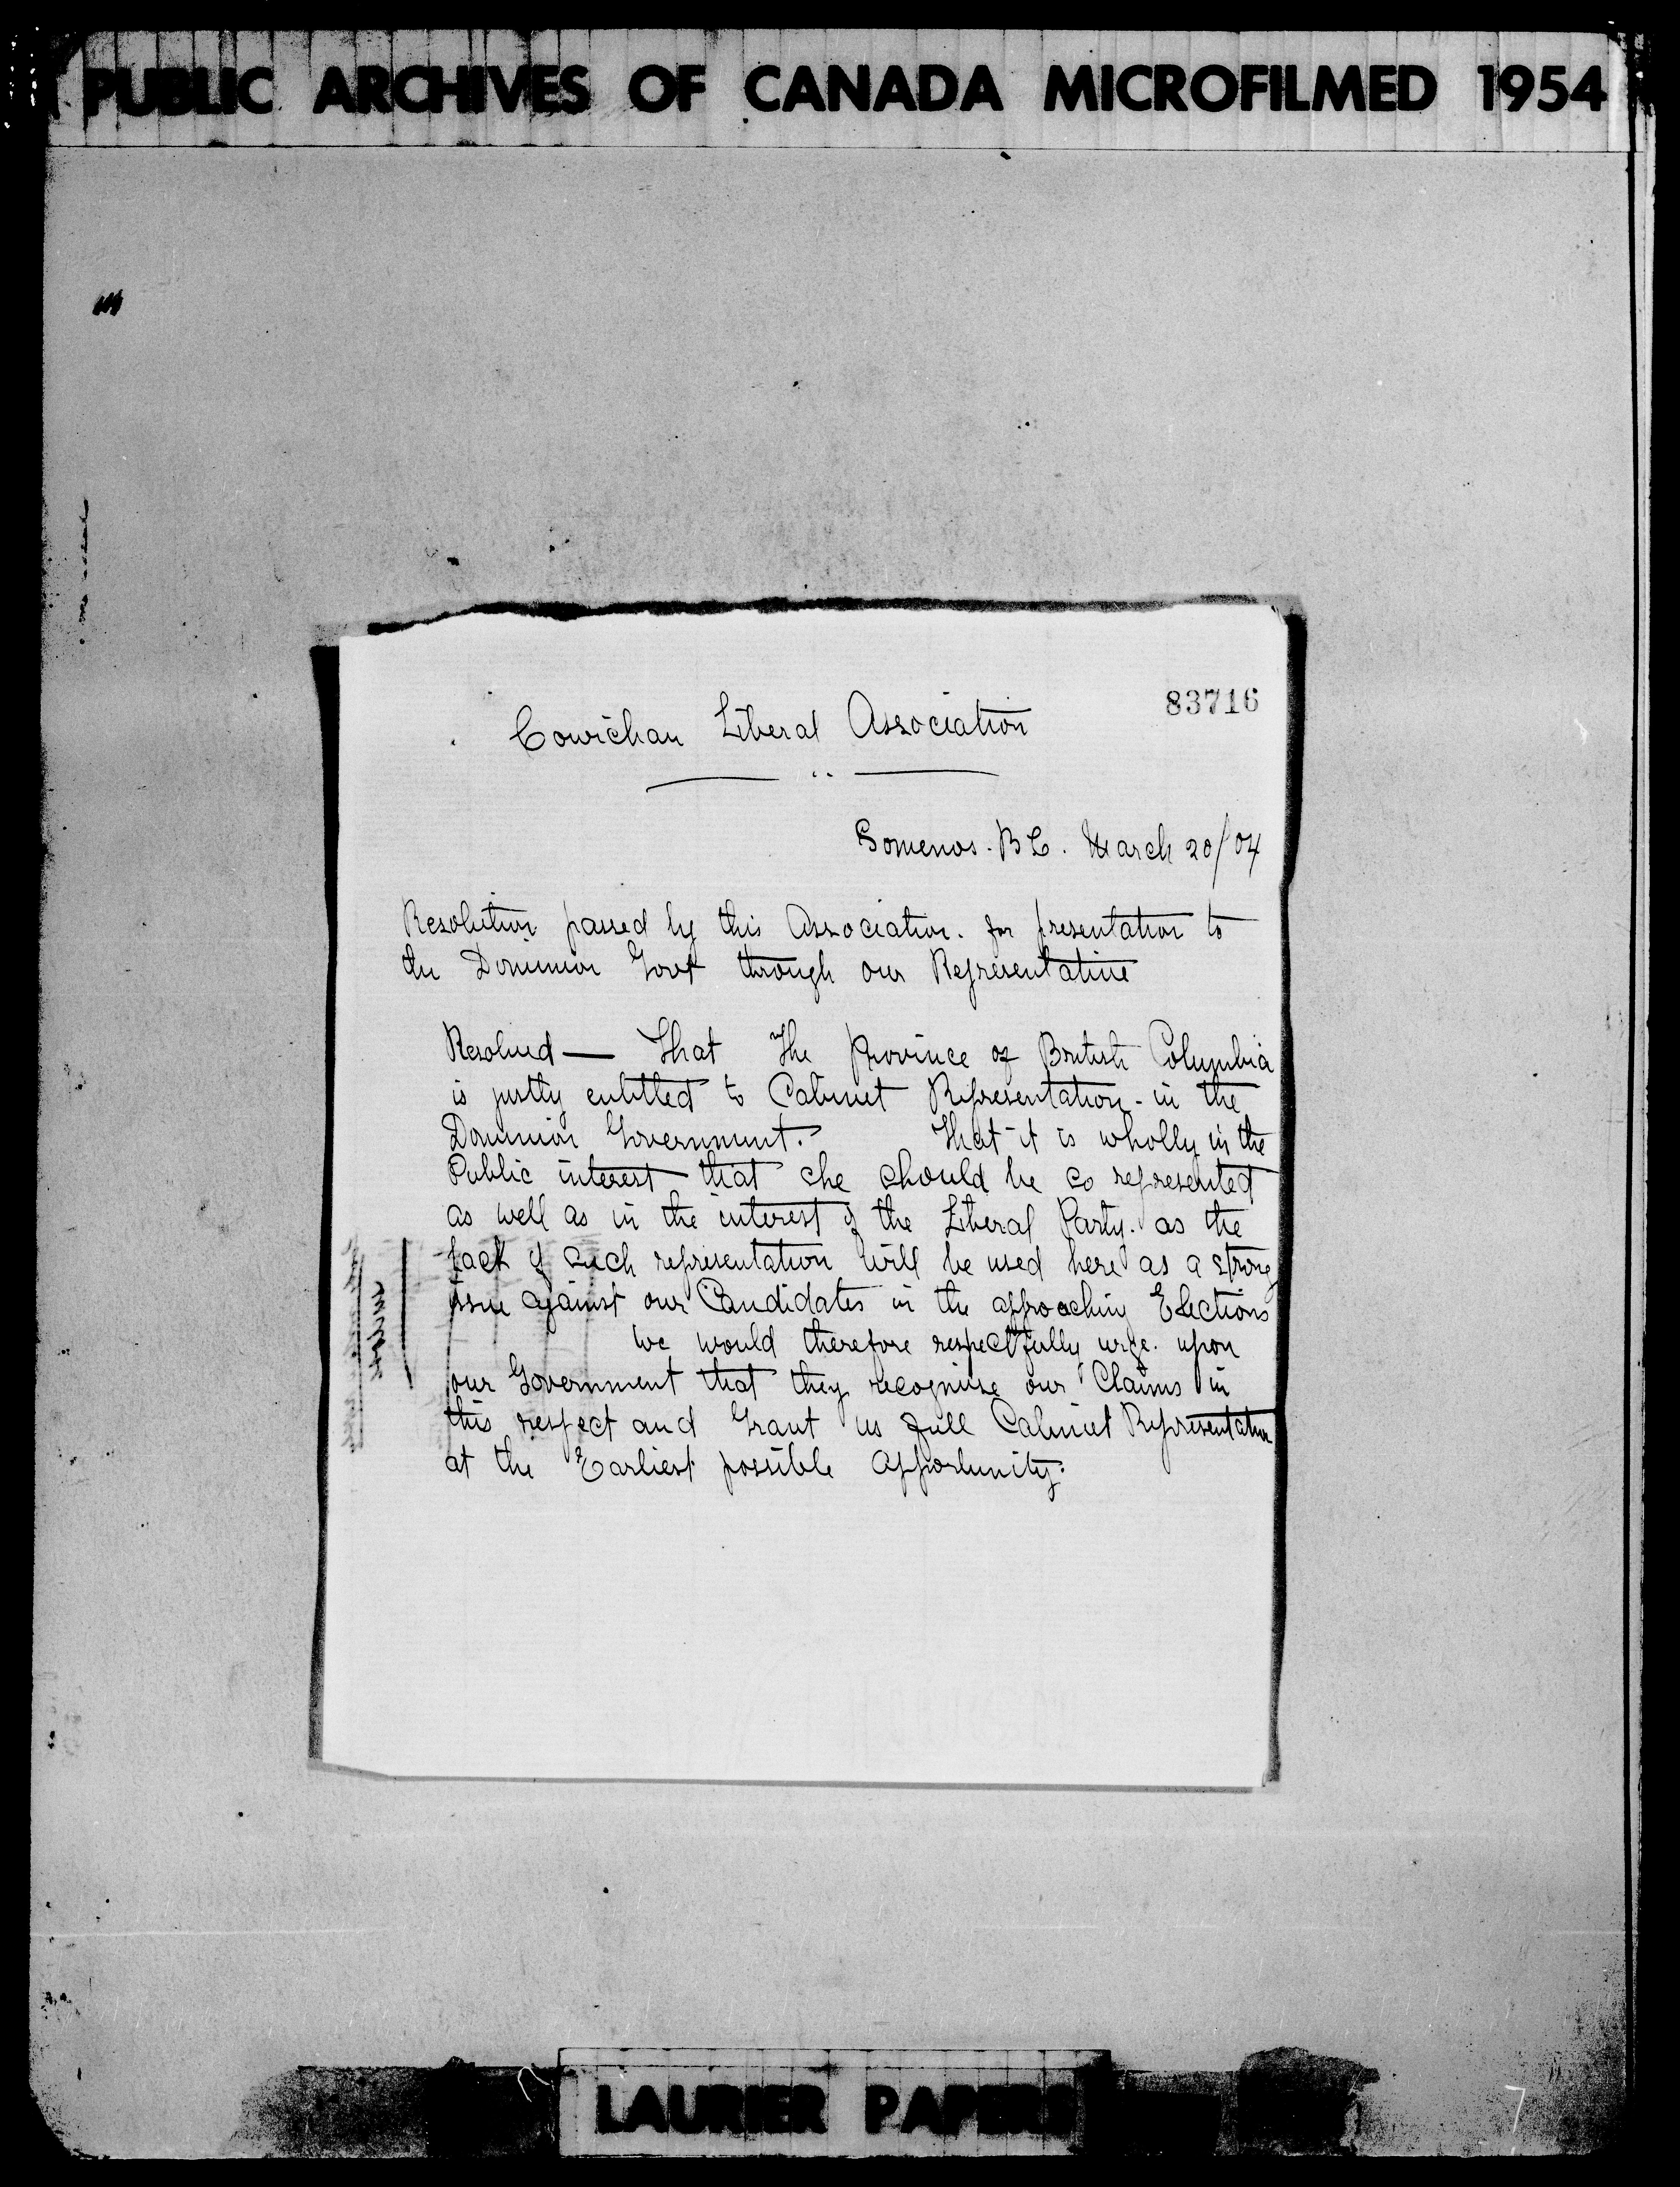 PUBLIC ARCHIVES OF CANADA MICROFILMED 1954
83716
Cowichan Liberal Association
Somenos. B C. March 20/04
Resolution passed by this Association. for presentation to
the Dominion Govt through our Representative
Resolved — That The Province of British Columbia
is justly entitled to Cabinet Representation - in the
Dominion Government. That it is wholly in the
Public interest that she should be so represented
as well as in the interest of the Liberal Party. as the
lack of such representation will be used here as a strong
issue against our Candidates in the approaching Elections
We would therefore respectfully urge. upon
our Government that they recognize our Claims in
this respect and Grant us full Cabinet Representation
at the Earliest possible Opportunity.
LAURIER PAPERS
7